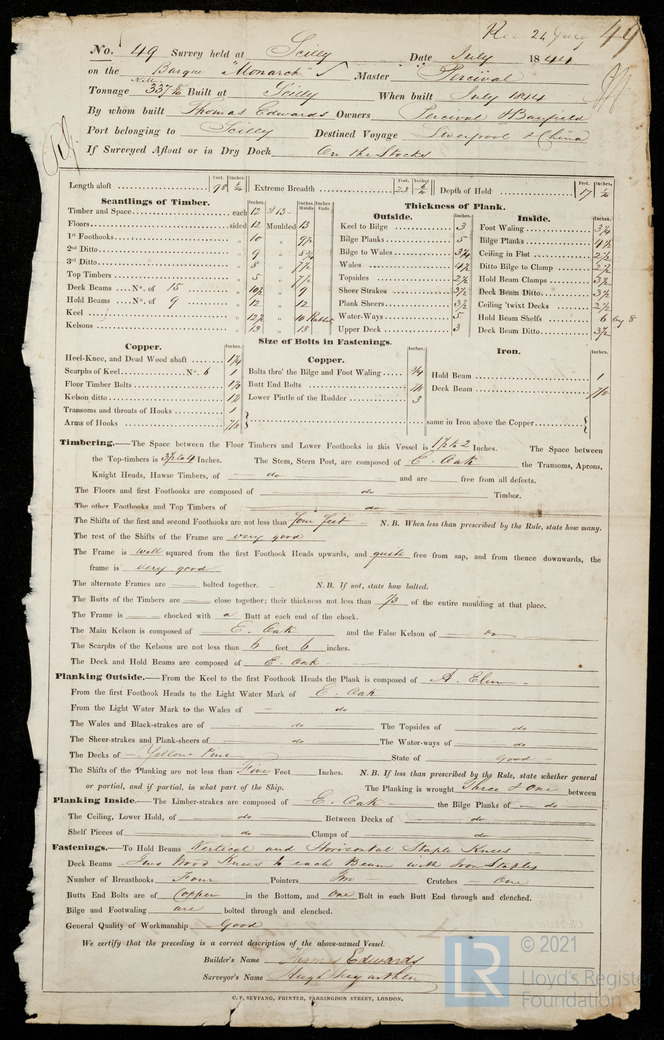 49
No. 49 Survey held at Scilly Date July 1844
on the Barque "Monarch" Master Percival
Tonnage 337 Built at Scilly When built July 1844
By whom built Thomas Edwards Owners Percival & Banfield
Port belonging to Scilly Destined Voyage Liverpool & China
If Surveyed Afloat or in Dry Dock On the Stocks
Feet. Inches. Feet. Inches. Feet. Inches.
Length aloft 98 Extreme Breadth 23 Depth of Hold 17
Scantlings of Timber. Thickness of Plank.
Outside. Inside.
Timber and Space each 12 & 13
Floors sided 12 Moulded 13
1st Foothooks „ 10 „ 9½
2nd Ditto „ 9 „
3rd Ditto „ 8 „ 7½
Top Timbers „ 5 „ 7½
Deck Beams No. of 15 „ 10½ „ 9
Hold Beams No. of 9 „ 12 „ 12
Keel „ 12½ „
Kelsons „ 13 „ 13
Keel to Bilge 3
Bilge Planks 5
Bilge to Wales 3¾
Wales 4½
Topsides 2½
Sheer Strakes 3½
Plank Sheers 3½
Water-Ways 5
Upper Deck 3
Foot Waling 3¼
Bilge Planks 4½
Ceiling in Flat 2½
Ditto Bilge to Clamp 2½
Hold Beam Clamps 3½
Deck Beam Ditto 3½
Ceiling 'twixt Decks 2½
Hold Beam Shelfs 6 by 8
Deck Beam Ditto 3½
Size of Bolts in Fastenings.
Copper. Copper. Iron.
Heel-Knee, and Dead Wood abaft 1¼
Scarphs of Keel No. 6 1
Floor Timber Bolts 1⅛
Kelson ditto 1⅛
Transoms and throats of Hooks 1
Arms of Hooks 7/8
Bolts thro' the Bilge and Foot Waling ¾
Butt End Bolts
Lower Pintle of the Rudder 3
Hold Beam 1
Deck Beam 7/8
same in Iron above the Copper
Timbering.—The Space between the Floor Timbers and Lower Foothooks in this Vessel is 1½ to 2 Inches. The Space between
the Top-timbers is 3½ to 4 Inches. The Stem, Stern Post, are composed of E. Oak the Transoms, Aprons,
Knight Heads, Hawse Timbers, of do and are free from all defects.
The Floors and first Foothooks are composed of do Timber.
The other Foothooks and Top Timbers of do
The Shifts of the first and second Foothooks are not less than four feet N. B. When less than prescribed by the Rule, state how many.
The rest of the Shifts of the Frame are very good
The Frame is well squared from the first Foothook Heads upwards, and quite free from sap, and from thence downwards, the
frame is very good
The alternate Frames are bolted together. N. B. If not, state how bolted.
The Butts of the Timbers are close together; their thickness not less than 1/3 of the entire moulding at that place.
The Frame is chocked with a Butt at each end of the chock.
The Main Kelson is composed of E. Oak and the False Kelson of do
The Scarphs of the Kelsons are not less than 6 feet 6 inches.
The Deck and Hold Beams are composed of E. Oak
Planking Outside.—From the Keel to the first Foothook Heads the Plank is composed of A. Elm
From the first Foothook Heads to the Light Water Mark of E. Oak
From the Light Water Mark to the Wales of do
The Wales and Black-strakes are of do The Topsides of do
The Sheer-strakes and Plank-sheers of do The Water-ways of do
The Decks of Yellow Pine State of good
The Shifts of the Planking are not less than Five Feet Inches. N. B. If less than prescribed by the Rule, state whether general
or partial, and if partial, in what part of the Ship. The Planking is wrought Three & one between
Planking Inside.—The Limber-strakes are composed of E. Oak the Bilge Planks of do
The Ceiling, Lower Hold, of do Between Decks of do
Shelf Pieces of do Clamps of do
Fastenings.—To Hold Beams Vertical and Horizontal Staple Knees
Deck Beams Wood Knees to each Beam with Iron Staples
Number of Breasthooks Four Pointers Crutches one
Butts End Bolts are of Copper in the Bottom, and one Bolt in each Butt End through and clenched.
Bilge and Footwaling are bolted through and clenched.
General Quality of Workmanship Good
We certify that the preceding is a correct description of the above-named Vessel.
Builder's Name Thomas Edwards
Surveyor's Name
C. F. SEYFANG, PRINTER, FARRINGDON STREET, LONDON.
LR
© 2021
Lloyd's Register
Foundation